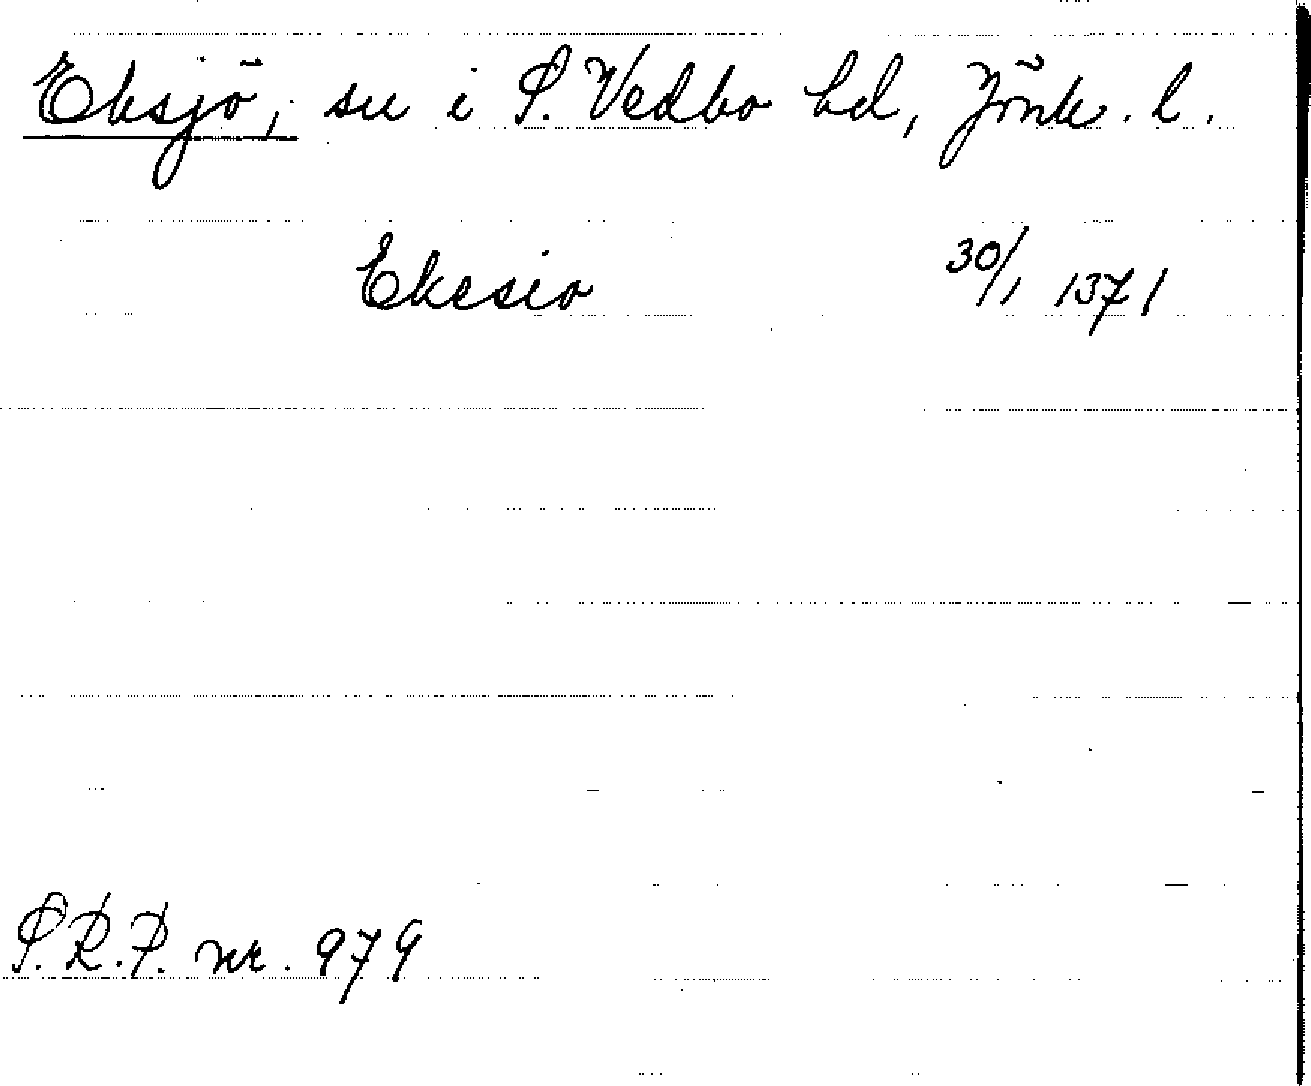 Eksjö, sn i S. Vedbo hd, Jönk. l.
Ekesio 30/1 1371
S.R.P. nr. 979